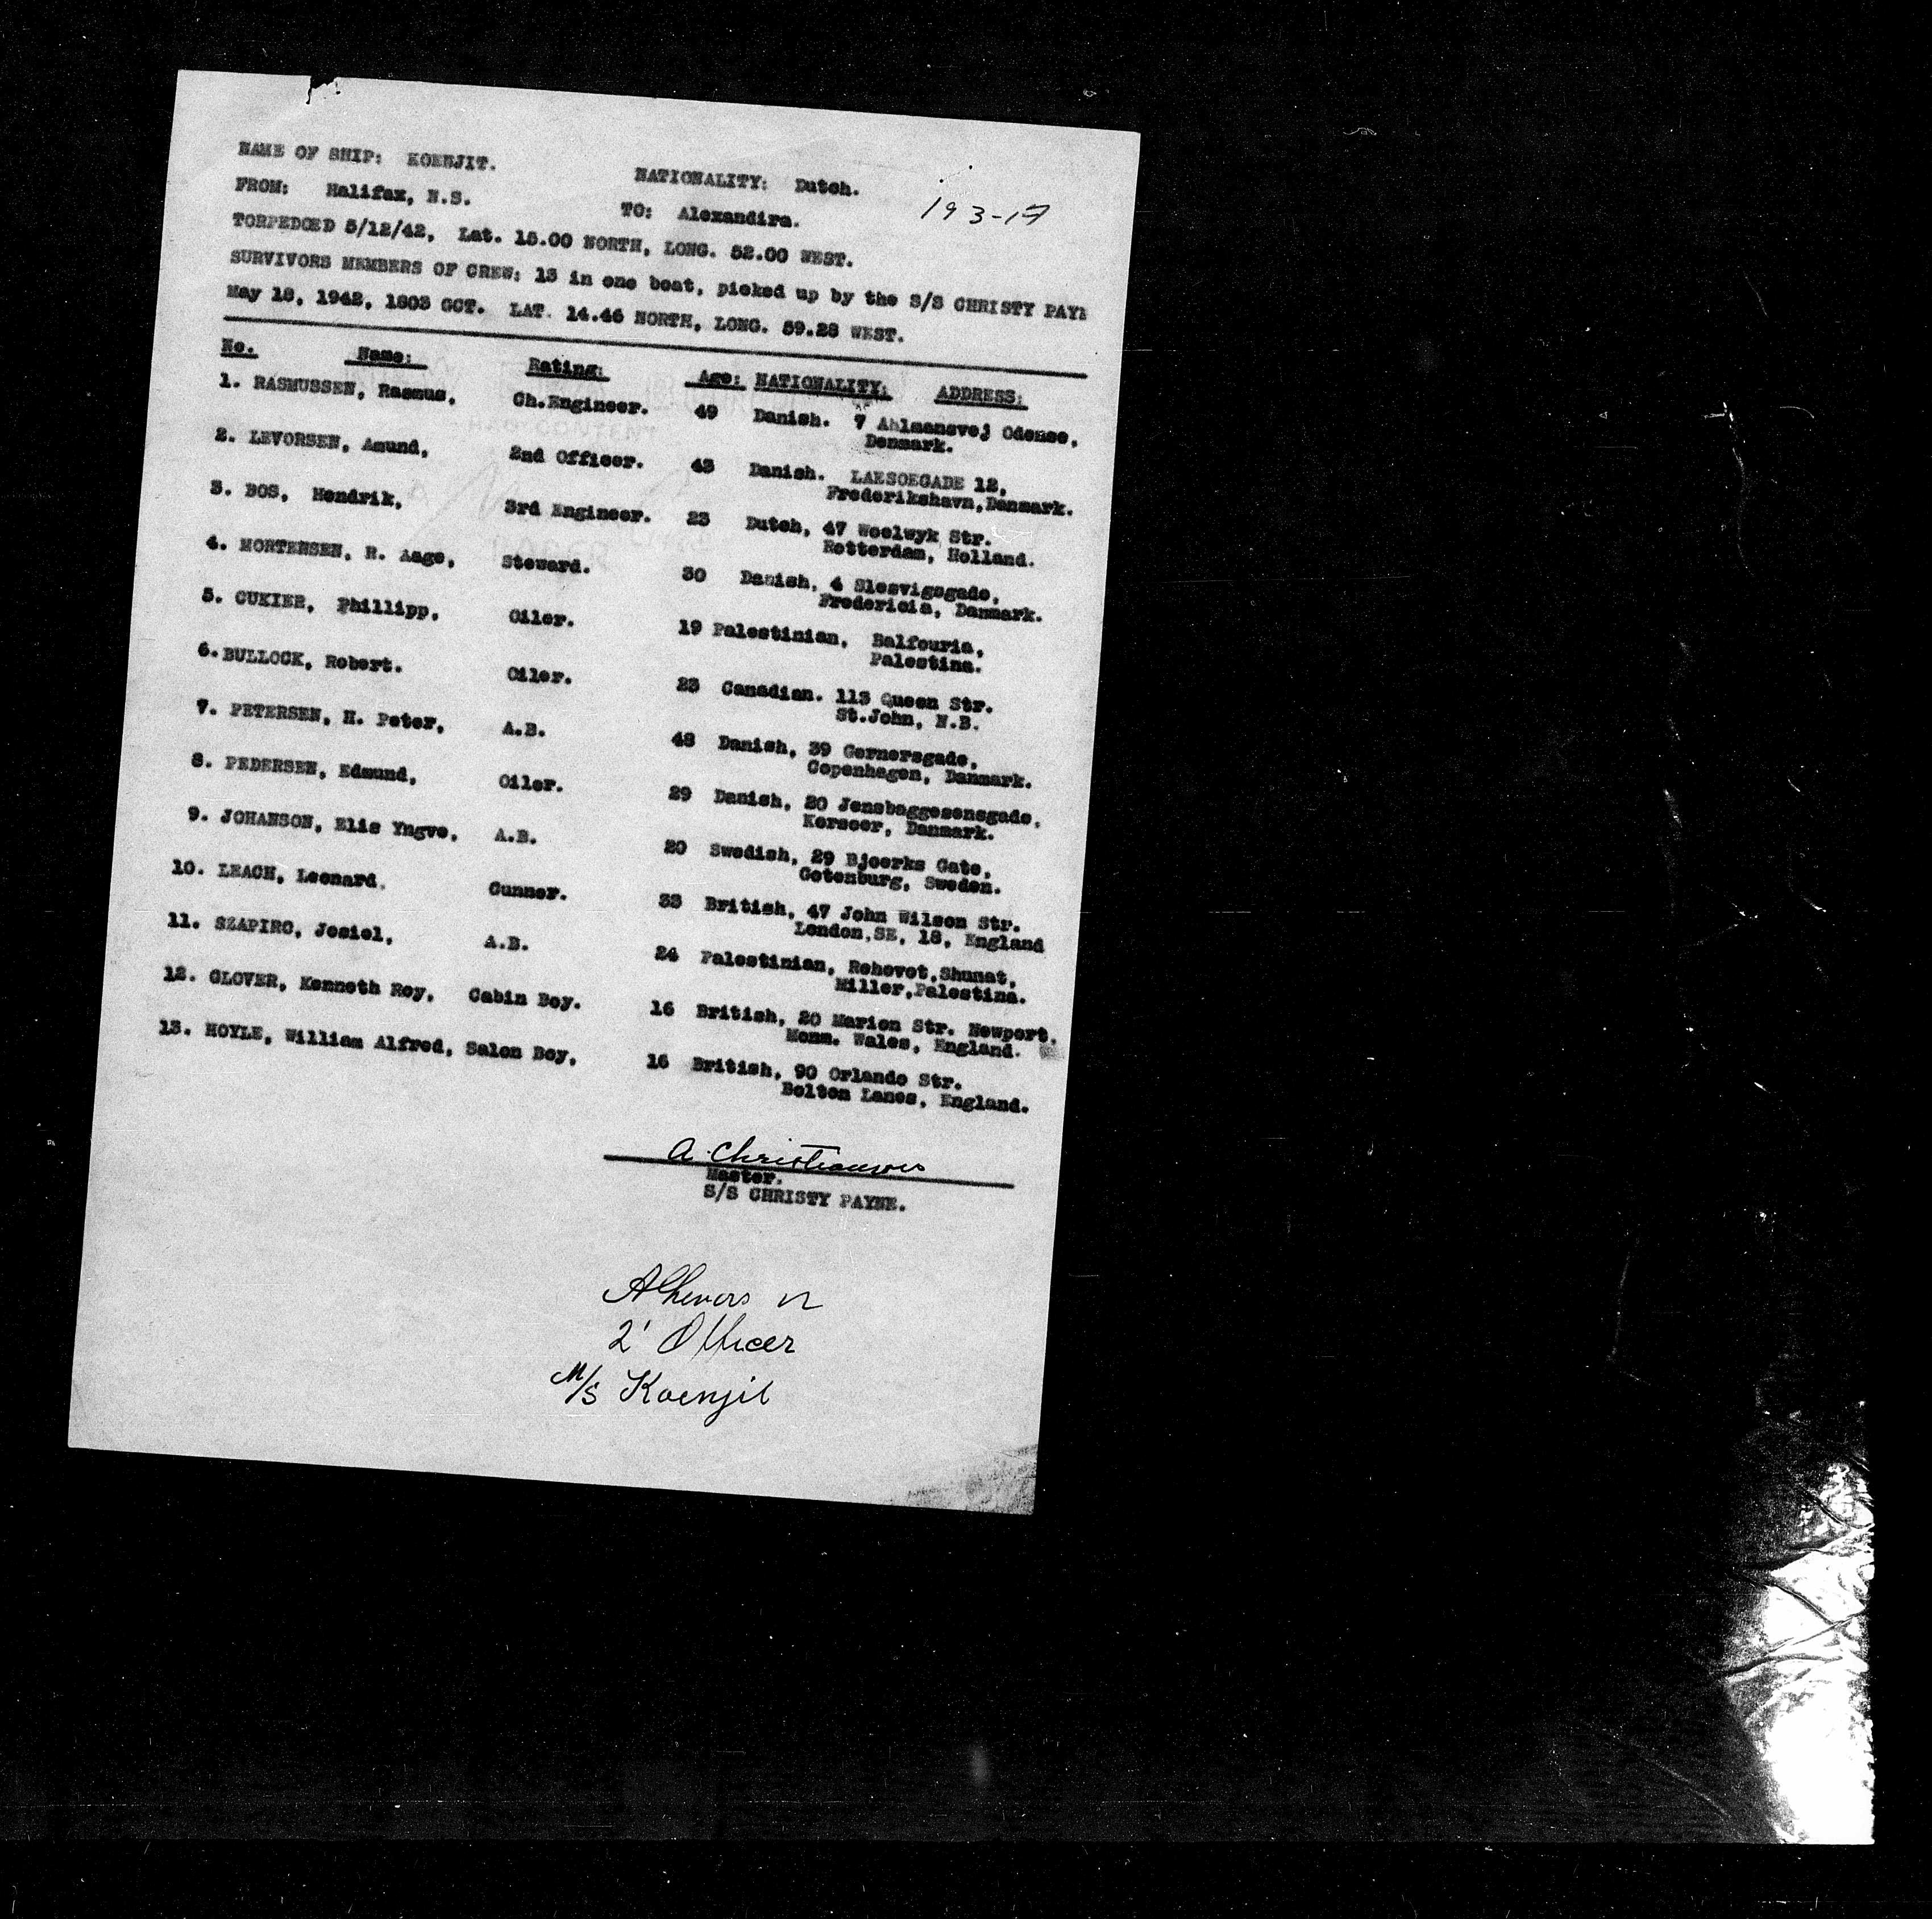 NAME OF SHIP: KOENJIT. NATIONALITY: Dutch.
193-17
FROM: Halifax, N.S. TO: Alexandira.
TORPEDOED 5/12/42, Lat. 15.00 NORTH, LONG. 52.00 WEST.
SURVIVORS MEMBERS OF CREW: 13 in one boat, picked up by the S/S CHRISTY PAYN
May 18, 1942, 1803 GCT. LAT. 14.46 NORTH, LONG. 59.28 WEST.
No. Name: Rating: Age: NATIONALITY: ADDRESS:
1. RASMUSSEN, Rasmus, Ch.Engineer. 49 Danish. 7 Ahlmansvej Odense,
Denmark.
2. LEVORSEN, Amund, 2nd Officer. 43 Danish. LAESOEGADE 12,
Frederikshavn,Danmark.
3. BOS, Hendrik, 3rd Engineer. 23 Dutch, 47 Woelwyk Str.
Rotterdam, Holland.
4. MORTENSEN, R. Aage, Steward. 30 Danish, 4 Slesvigsgade,
Fredericia, Danmark.
5. CUKIER, Phillipp, Oiler. 19 Palestinian, Balfouria,
Palestina.
6. BULLOCK, Robert. Oiler. 23 Canadian. 113 Queen Str.
St.John, N.B.
7. PETERSEN, H. Peter, A.B. 48 Danish, 39 Gernersgade,
Copenhagen, Danmark.
8. PEDERSEN, Edmund, Oiler. 29 Danish, 20 Jensbaggesensgade,
Korsoer, Danmark.
9. JOHANSON, Elis Yngve, A.B. 20 Swedish, 29 Bjoerks Gate,
Gotenburg, Sweden.
10. LEACH, Leonard. Gunner. 33 British, 47 John Wilson Str.
London,SE, 18, England
11. SZAPIRO, Josiel, A.B. 24 Palestinian, Rehovot,Shunat,
Miller,Palestina.
12. GLOVER, Kenneth Roy, Cabin Boy. 16 British, 20 Marion Str. Newport,
Monm. Wales, England.
13. HOYLE, William Alfred, Salon Boy, 16 British, 90 Orlando Str.
Bolton Lancs, England.
A. Christiansen
Master.
S/S CHRISTY PAYNE.
2' Officer
M/S Koenjit